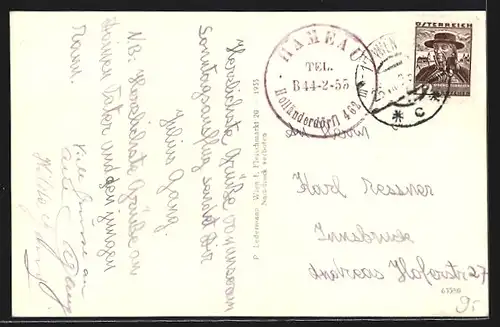 Herzlichste Grüße von unserem
Sonntagsausflug sendet Dir
Julius Gang.
NB: Herzlichste Grüße an
Deinen Vater und den jungen
Mann.
Viele Grüsse an
P. Ledermann Wien I, Fleischmarkt 20 1935
Nachdruck verboten
HAMEAU
TEL.
B 44-2-55
Holländerdörfl 463 m
WIEN
C
ÖSTERREICH
Herrn
Karl Ressner
Innsbruck
Andreas Hoferstr 27
63580
9.-